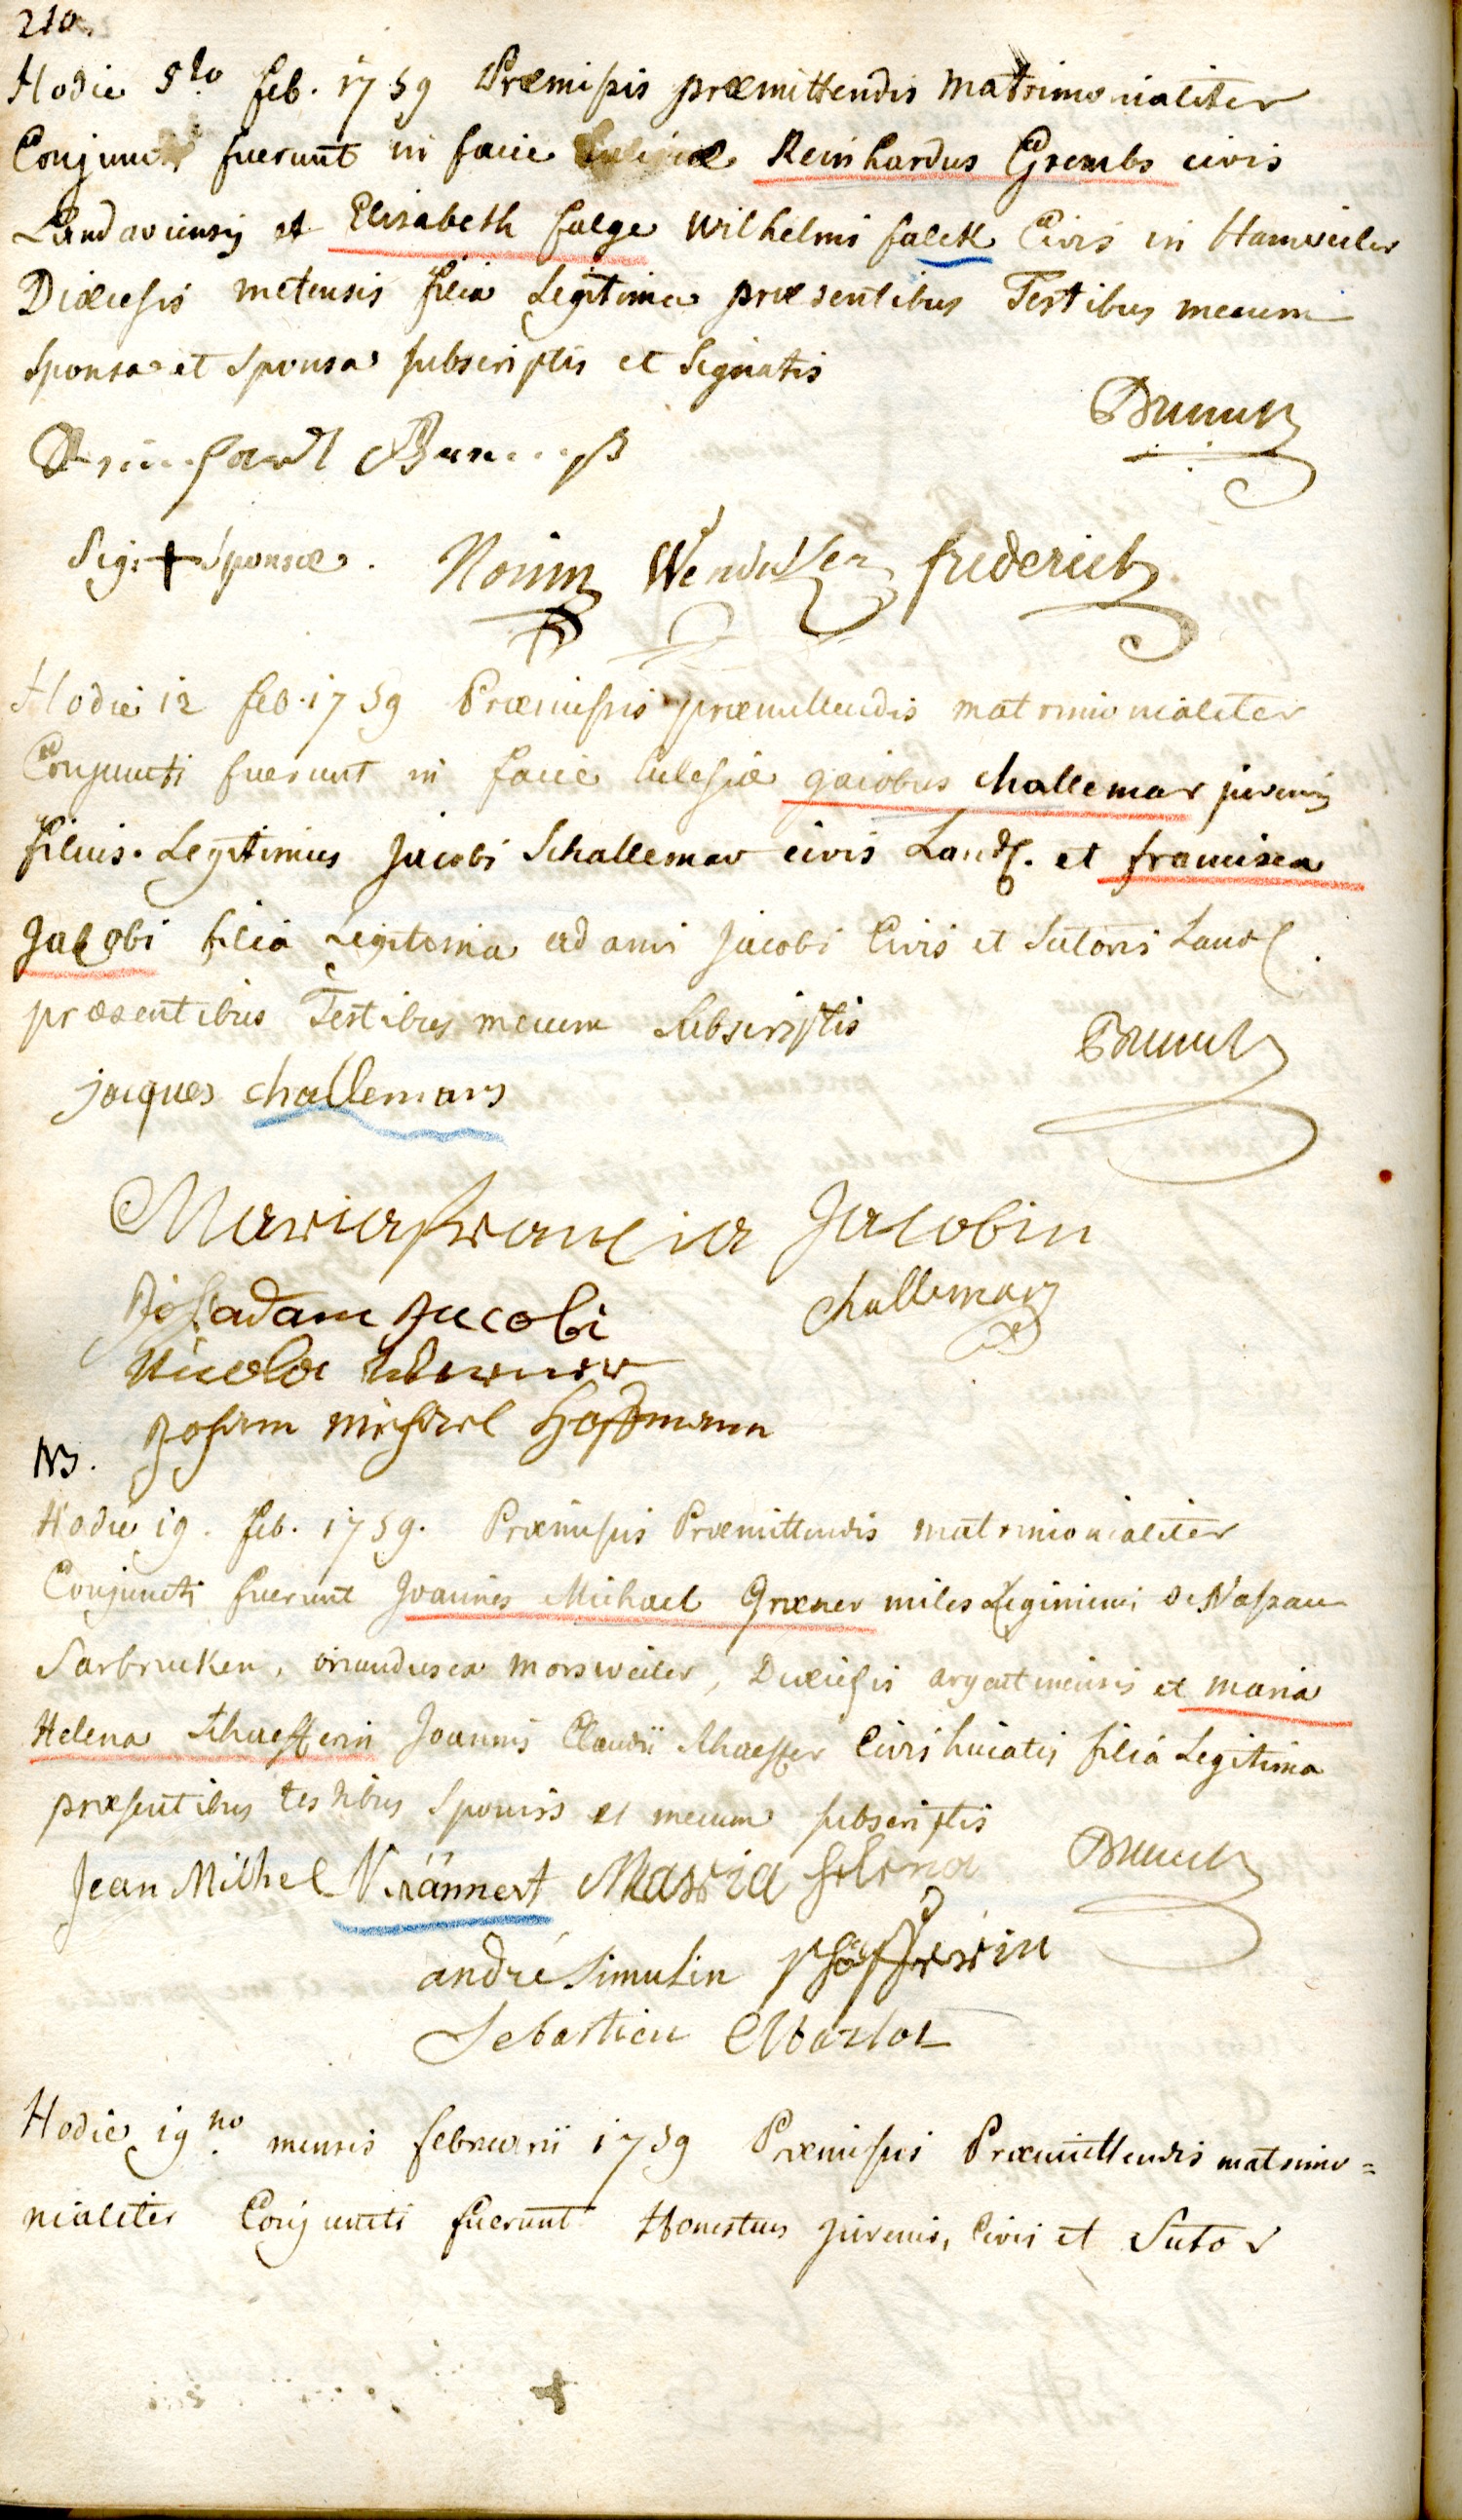 210.
Hodie 5to feb. 1759 Præmissis præmittendis matrimonialiter
Conjuncti fuerunt in facie Ecclesiæ Reinhardus Grembs civis
Landaviensis et Elisabeth falge Wilhelmi falck Civis in Hanweiler
Diæcesis metensis filia Legitima præsentibus Testibus mecum
sponso et sponsa subscriptis et signatis
Reinhardt
Sig: + sponsæ. Wendel frederich
Hodie 12 feb. 1759 Præmissis præmittendis matrimonialiter
Conjuncti fuerunt in facie Eclesiæ Jacobus challemar juvenis
filius Legitimus Jacobi Schallemar civis Land. et francisca
Jacobi filia Legitima adami Jacobi Civis et Sutoris Land.
præsentibus Testibus mecum subscriptis
jacques challemars
Maria francsia Jacobin
Joh adam Jacobi challemar
Nicola Werner
Johann Michael Hoffmann
NB.
Hodie 19. feb. 1759. Præmissis Præmittendis matrimonialiter
Conjuncti fuerunt Joannes Michael Græner miles Legiminis de Nassau
Sarbrucken, oriundus ex morsweiler, Diæcesis argentinensis et maria
Helena Schaefferin Joannis Claudii Schaeffer Civis huiatis filia Legitima
præsentibus testibus sponsis et mecum subscriptis
Jean Michel Krännert Maria Helena
andré Simulin schäfferin
Sebastien
Hodie 19no mensis februarii 1759 Præmissis Præmittendis matrimo=
nialiter Conjuncti fuerunt Honestus juvenis, Civis et Sutor